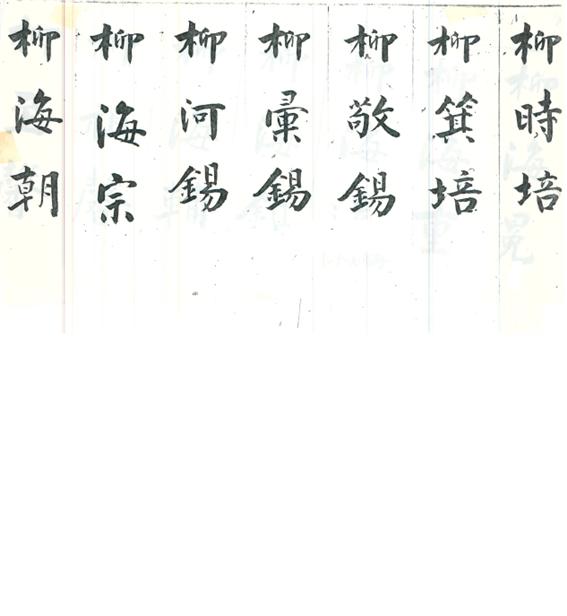 柳時培
柳箕培
柳敬錫
柳彙錫
柳河錫
柳海宗
柳海朝